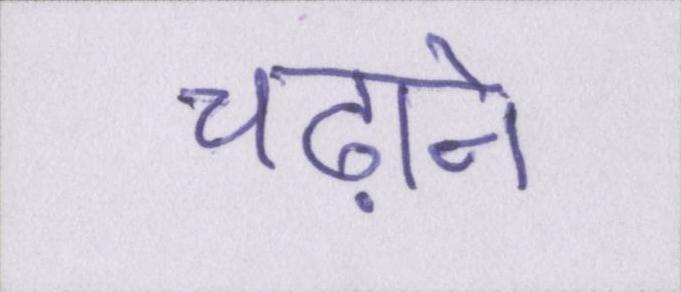 चढ़ाने